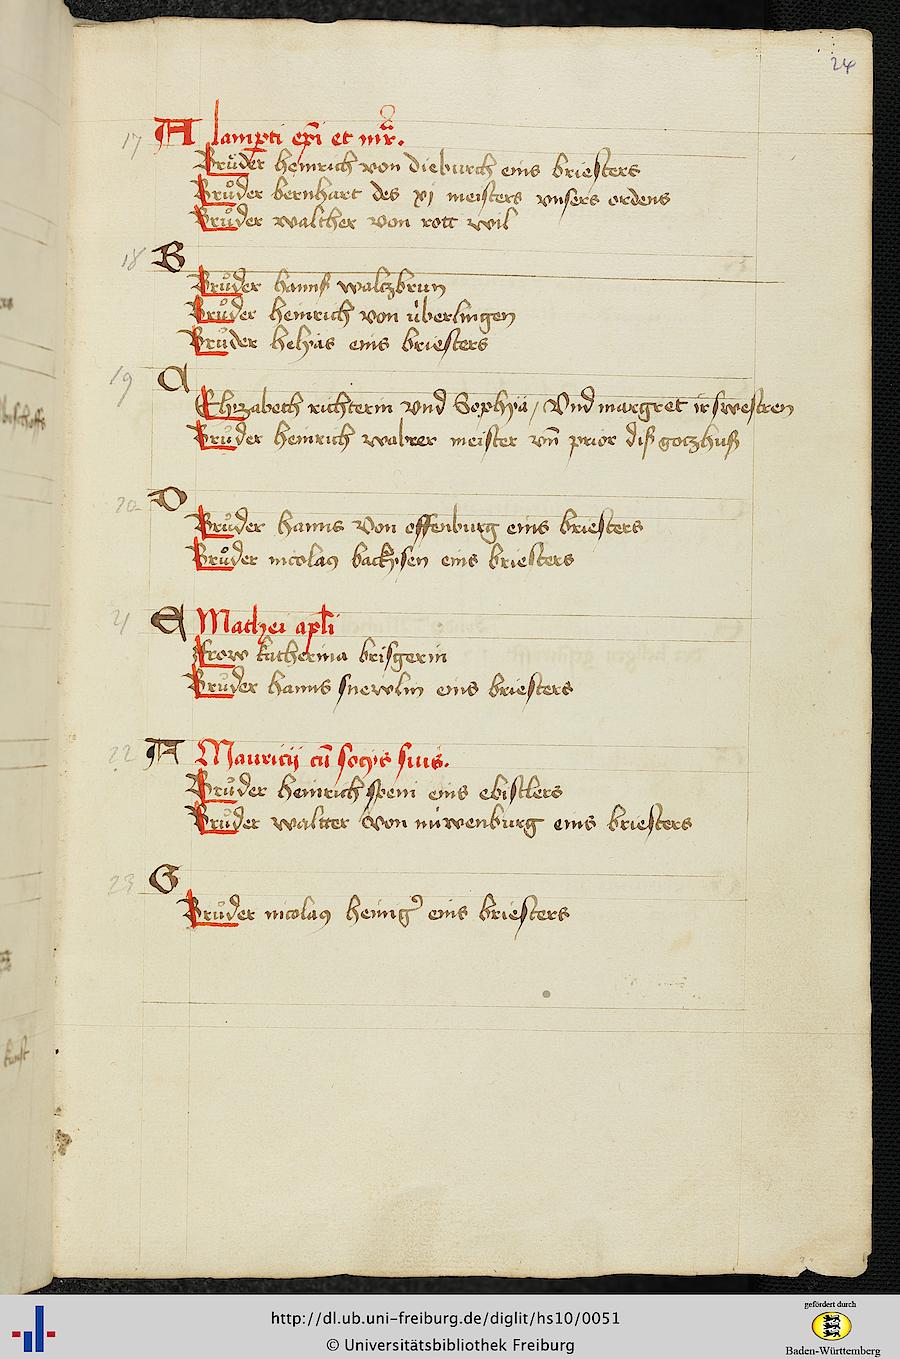 24
17 A lamperti epi et mr.
Bruͦder heinrich von dieburch eins briesters
Bruͦder bernhart des xj meisters vnsers ordens
Bruͦder walther von rott wil
18 B
Bruͦder hanns waltzbrun
Bruͦder heinrich von uͤberlingen
Bruͦder helyas eins briesters
19 C
Elyzabeth richterin vnd Sophya / Vnd margret ir swestren
Bruͦder heinrich wabrer meister vn̄ prior diß goczhuß
20 D
Bruͦder hanns von offenburg eins briesters
Bruͦder nicolaꝯ backysen eins briesters
21 E Mathei apli
Frow katherina brisgerin
Bruͦder hanns snewlin eins briesters
22 Mauricij cū socijs suis.
Bruͦder heinrich speni eins ebistlers
Bruͦder waltter von nuͤwenburg eins briesters
23 G
Bruͦder nicolaꝯ eins briesters
http://dl.ub.uni-freiburg.de/diglit/hs10/0051
© Universitätsbibliothek Freiburg
gefördert durch
Baden-Württemberg